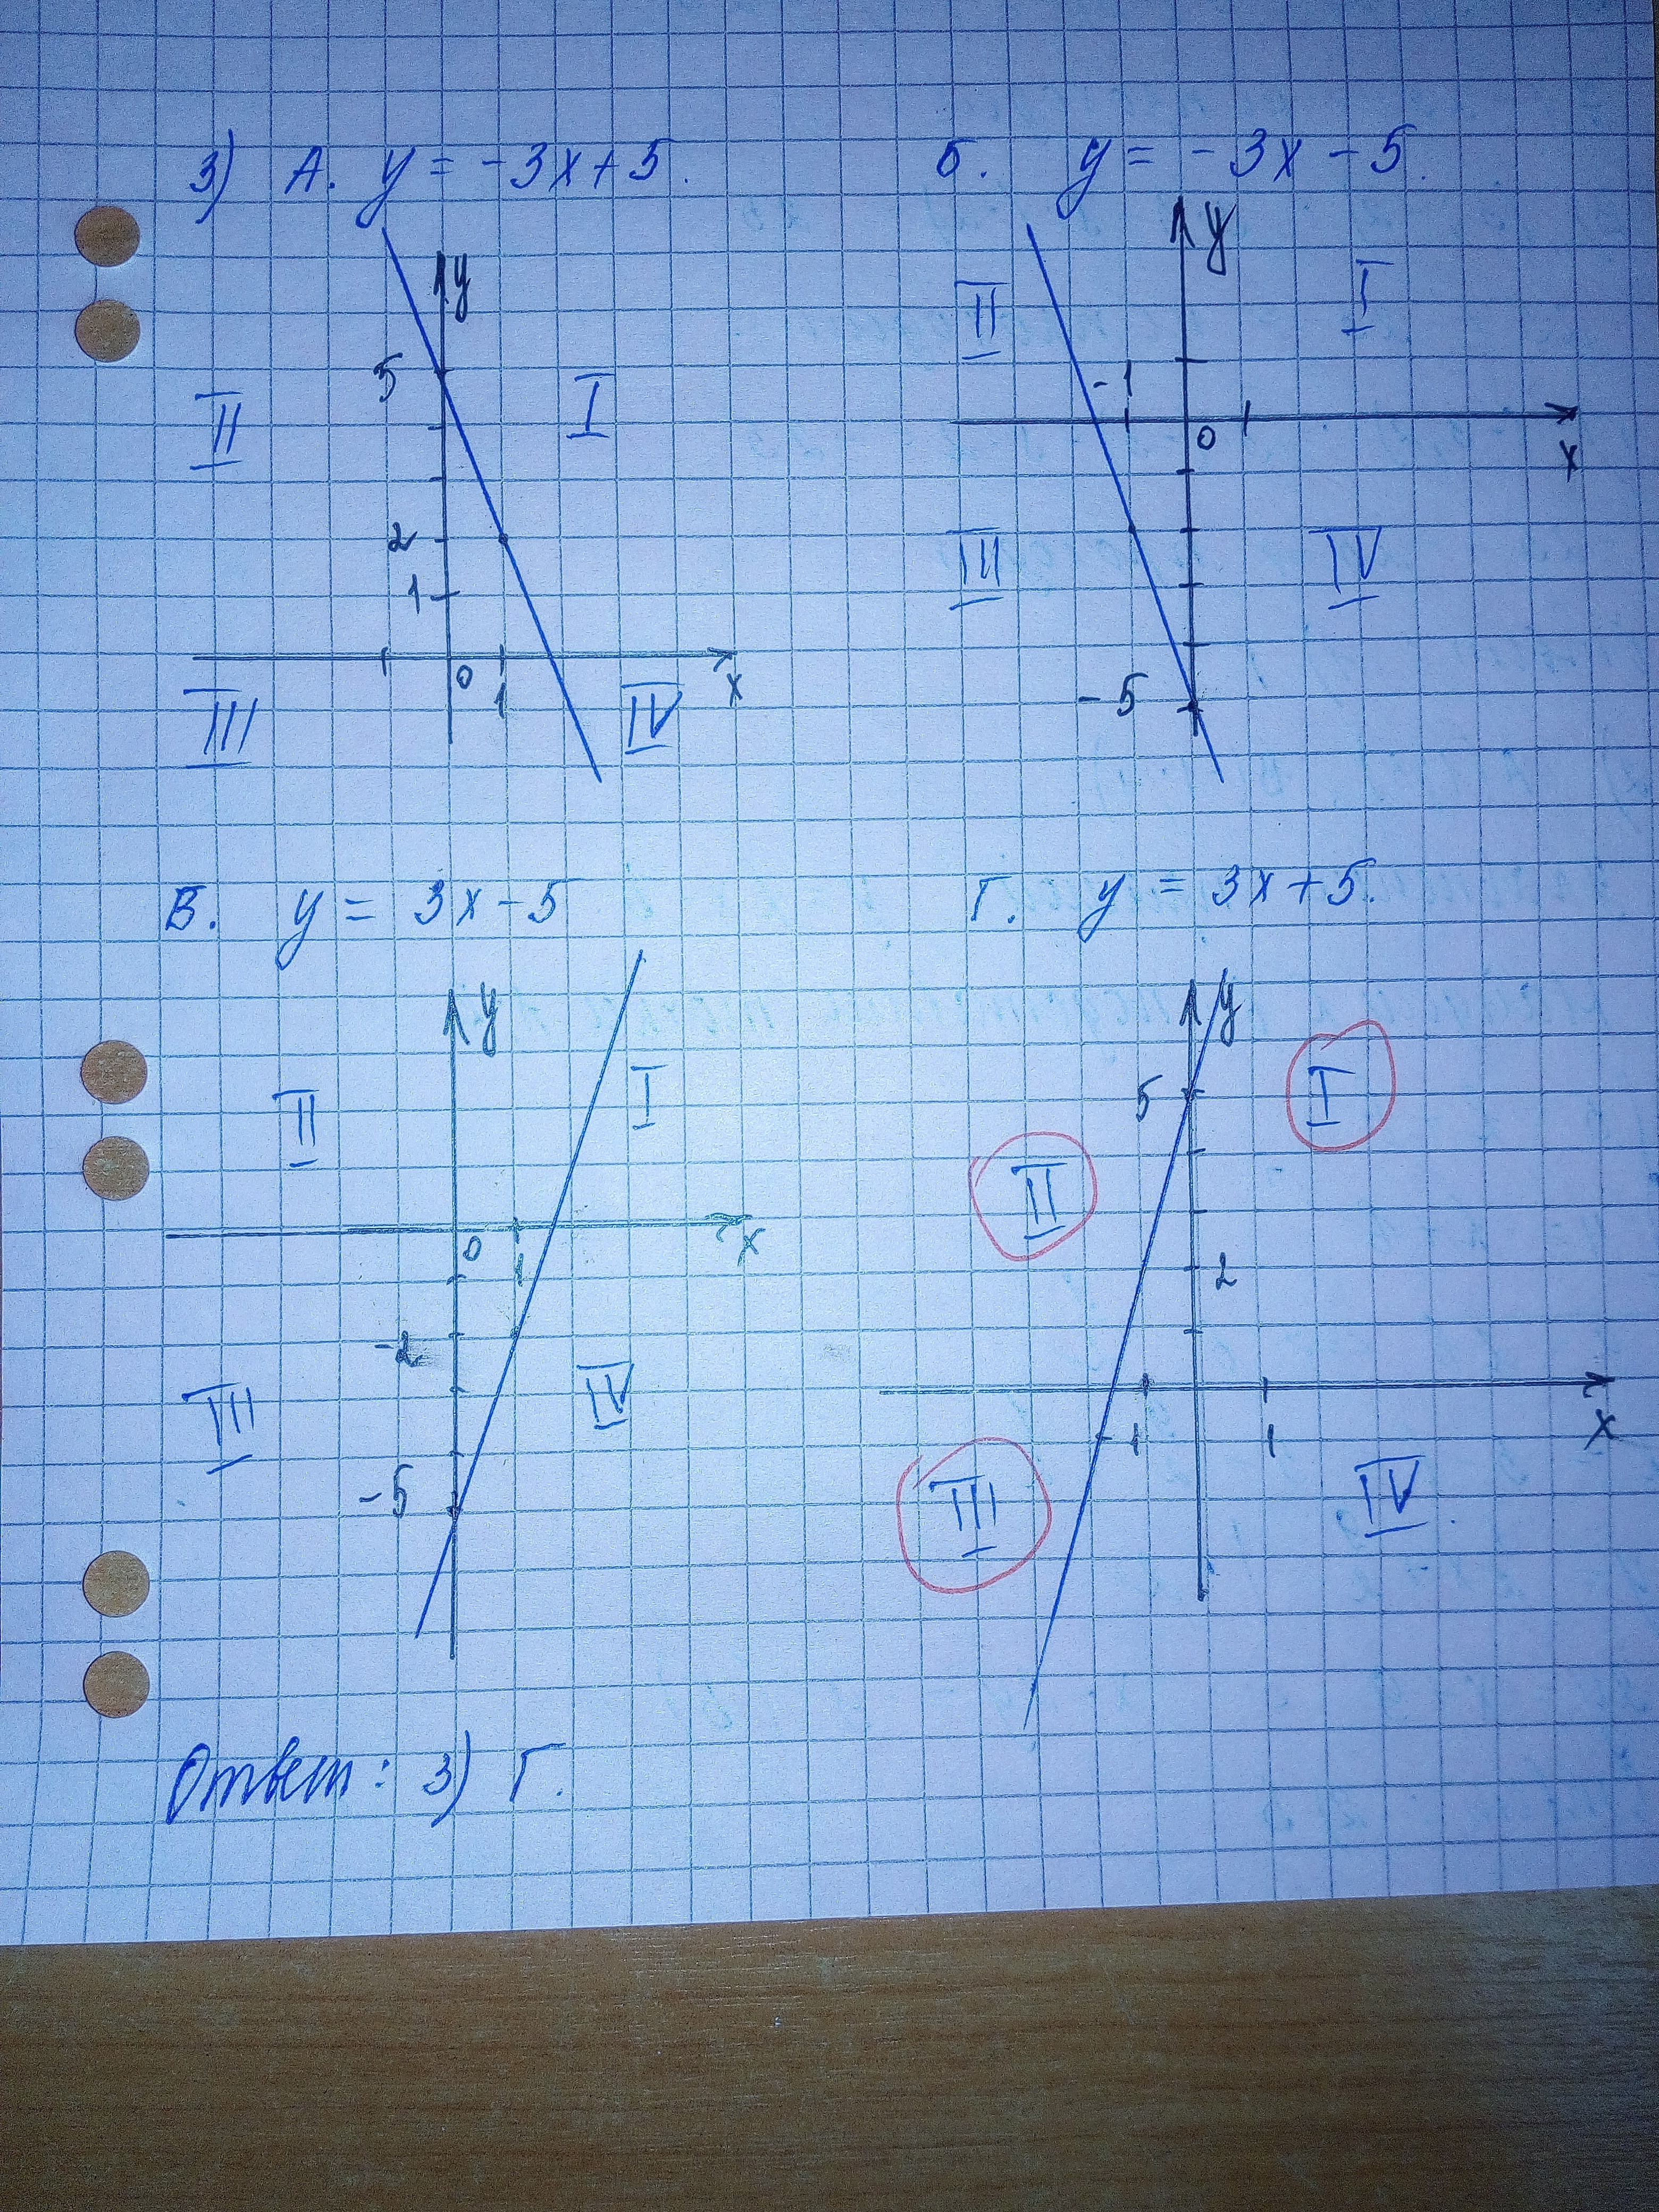 3) А. y = -3x+5.
Б. y = -3x-5.
y
5
II
I
2
1
0
1
x
III
IV
y
II
I
-1
0
x
III
IV
-5
В. y = 3x-5
Г. y = 3x+5.
y
I
II
0
1
x
-2
III
IV
-5
y
5
I
II
2
-1
1
x
III
IV
Ответ: 3) Г.